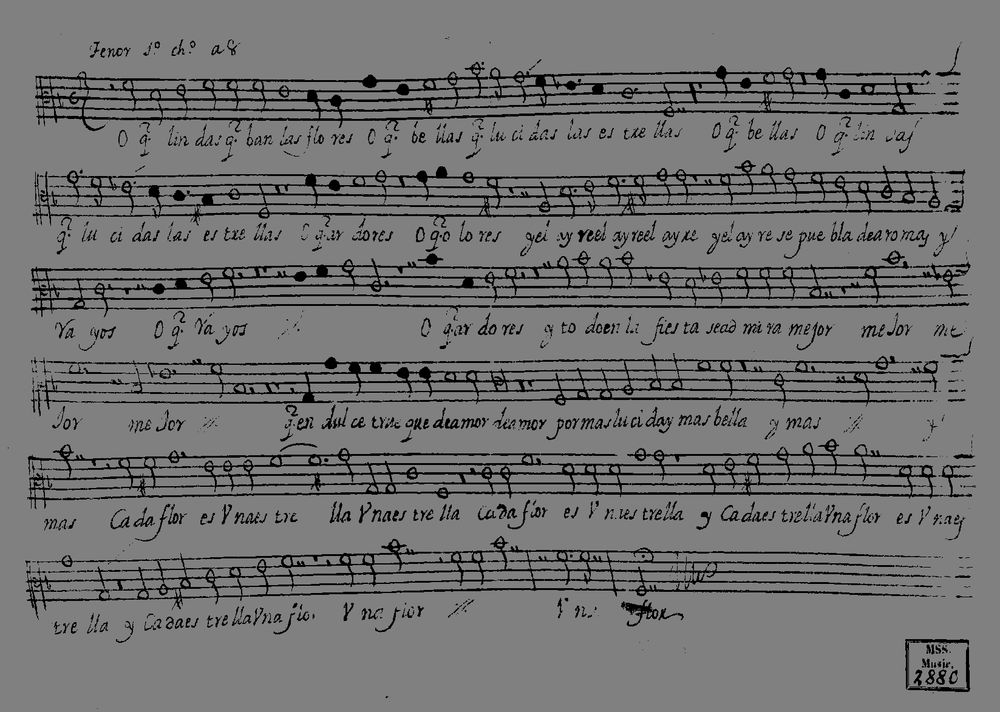 Tenor 1º chº a 8
O q̃ lin das q̃ ban las flo res O q̃ be llas q̃ lu ci das las es tre llas O q̃ be llas O q̃ lin
q̃ lu ci das las es tre llas O q̃ ar dores O q̃ o lo res yel ay reel ayreel ayre yel ay re se pue bla dearomas y
Ra yos O q̃ Ra yos O q̃ ar do res y to doen la fies ta sead mi ra mejor me Jor me
Jor me Jor q̃en dul ce true que deamor deamor por mas lu ci day mas bella y mas y
mas Ca da flor es V naes tre lla V naes tre lla Ca da flor es V naes trella y Ca daes trella Vna flor es V naes
tre lla y Ca daes tre lla Vna flor V na flor V na flor
MSS.
Music.
2880